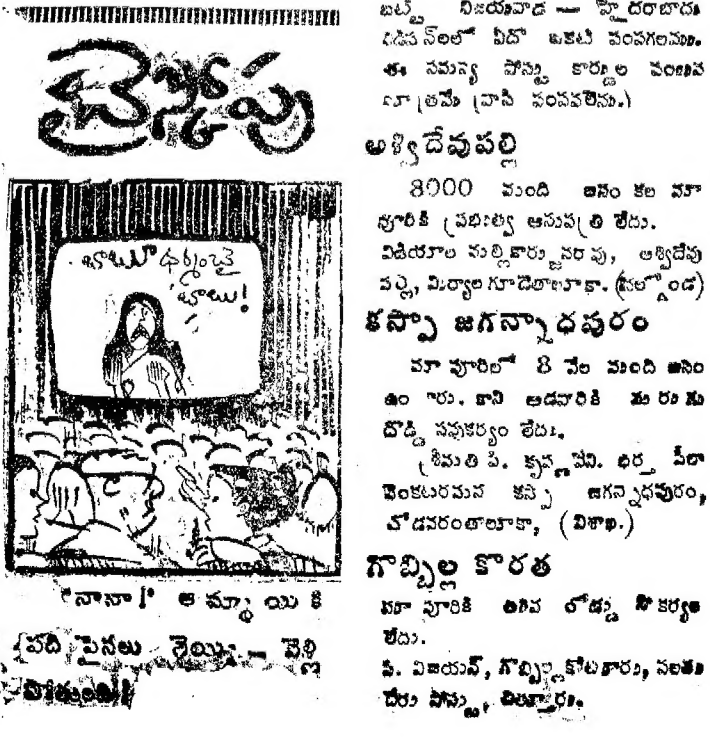 బైస్కోపు
బాబూ ధర్మంచై
బాబు!
"నానా! అమ్మాయికి
పది పైసలు వెయ్యి – వెళ్ళి
పోతుంది!
బట్టీ విజయవాడ — హైదరాబాదు
ఎడిషన్‌లలో ఏదో ఒకటి పంపగలము.
ఈ సమస్య పోస్టు కార్డుల పంజువ
మాత్రమే వ్రాసి పంపవలెను.)
అశ్విదేవుపల్లి
8000 మంది జనం కల మా
వూరికి ప్రభుత్వ ఆసుపత్రి లేదు.
విజియాల మల్లికార్జునరావు, అశ్విదేవు
పల్లి, మిర్యాలగూడెతాలూకా. (నల్గొండ)
కస్పా జగన్నాధపురం
మా వూరిలో 8 వేల మంది జనం
ఉంారు. కాని ఆడవారికి మరుగు
దొడ్డి సవుకర్యం లేదు.
శ్రీమతి పి. కృష్ణవేణి. భర్త పీలా
వెంకటరమన కస్పా జగన్నాధపురం,
చోడవరంతాలూకా, (విశాఖ.)
గొబ్బిల్ల కొరత
మా వూరికి తగిన రోడ్డు సౌకర్యం
లేదు.
పి. విజయన్, గొబ్బిల్లకోటూరు, నలతు
దేరు పోస్టు, చిత్తూరు.